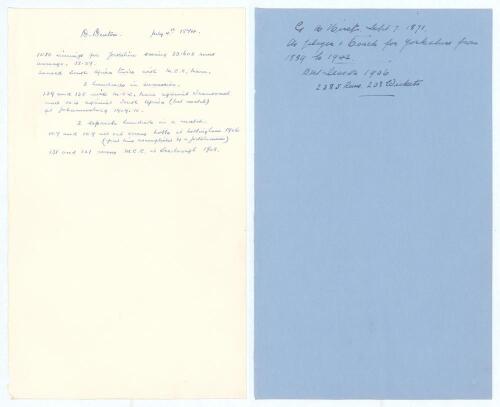 D. Denton. July 4th 1874.
1080 innings for Yorkshire scoring 33,608 runs
average. 33.39.
toured South Africa twice with M.C.C. team.
3 hundreds in succession.
139 and 138 with M.C.C. team against Transvaal
and 104 against South Africa (test match)
at Johannesburg 1909-10.
2 separate hundreds in a match.
107 and 109 not out versus Notts at Nottingham 1906
(first time accomplished by a Yorkshireman)
133 and 121 versus M.C.C. at Scarborough 1908.
G. H. Hirst. Sept 7. 1871.
As player & Coach for Yorkshire from
1889 to 1942.
1906
2385 Runs 208 Wickets